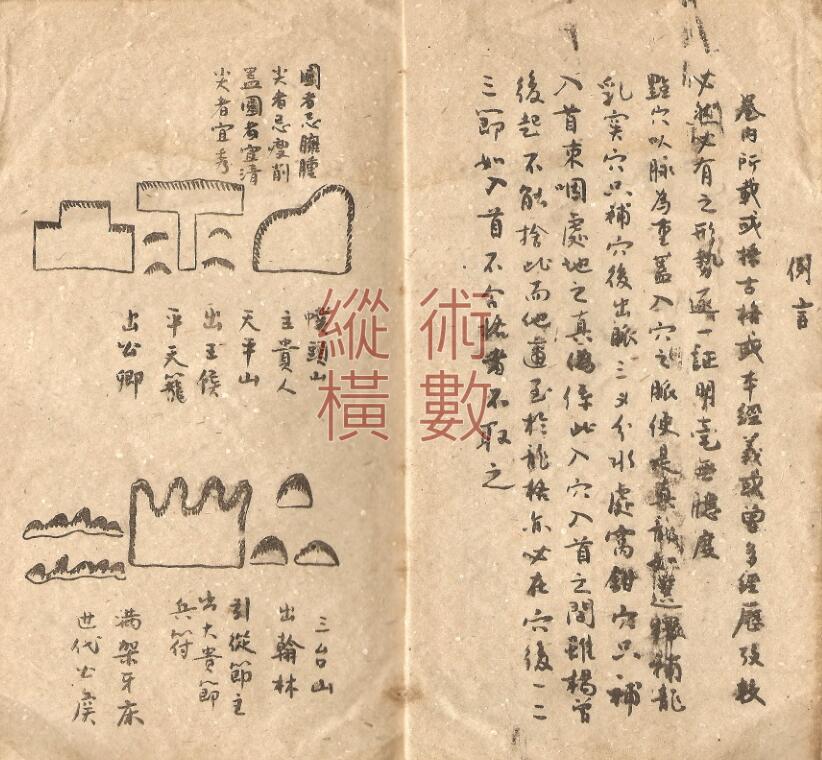 例言
卷内所載或搽古格或本經義或曾多經歷攷数
必理必有之形勢逐一証明毫無臆度
點穴以脉為重蓋入穴之脈便是真龍如
乳突穴只補穴後出脈三义分水處窩鉗穴只補
入首束咽處地之真偽係此入穴入首之間雖楊曾
後起不能捨此而他適至於龍格亦必在穴後一二
三節如入首不合格者不取之
圓者忌臃腫
尖者忌瘦削
蓋圓者宜清
尖者宜秀
幞頭山
主貴人
天平山
出王侯
平天籠
出公卿
三台山
出翰林
引從節主
出大貴節
兵符
滿架牙床
世代公侯
術數
縱橫